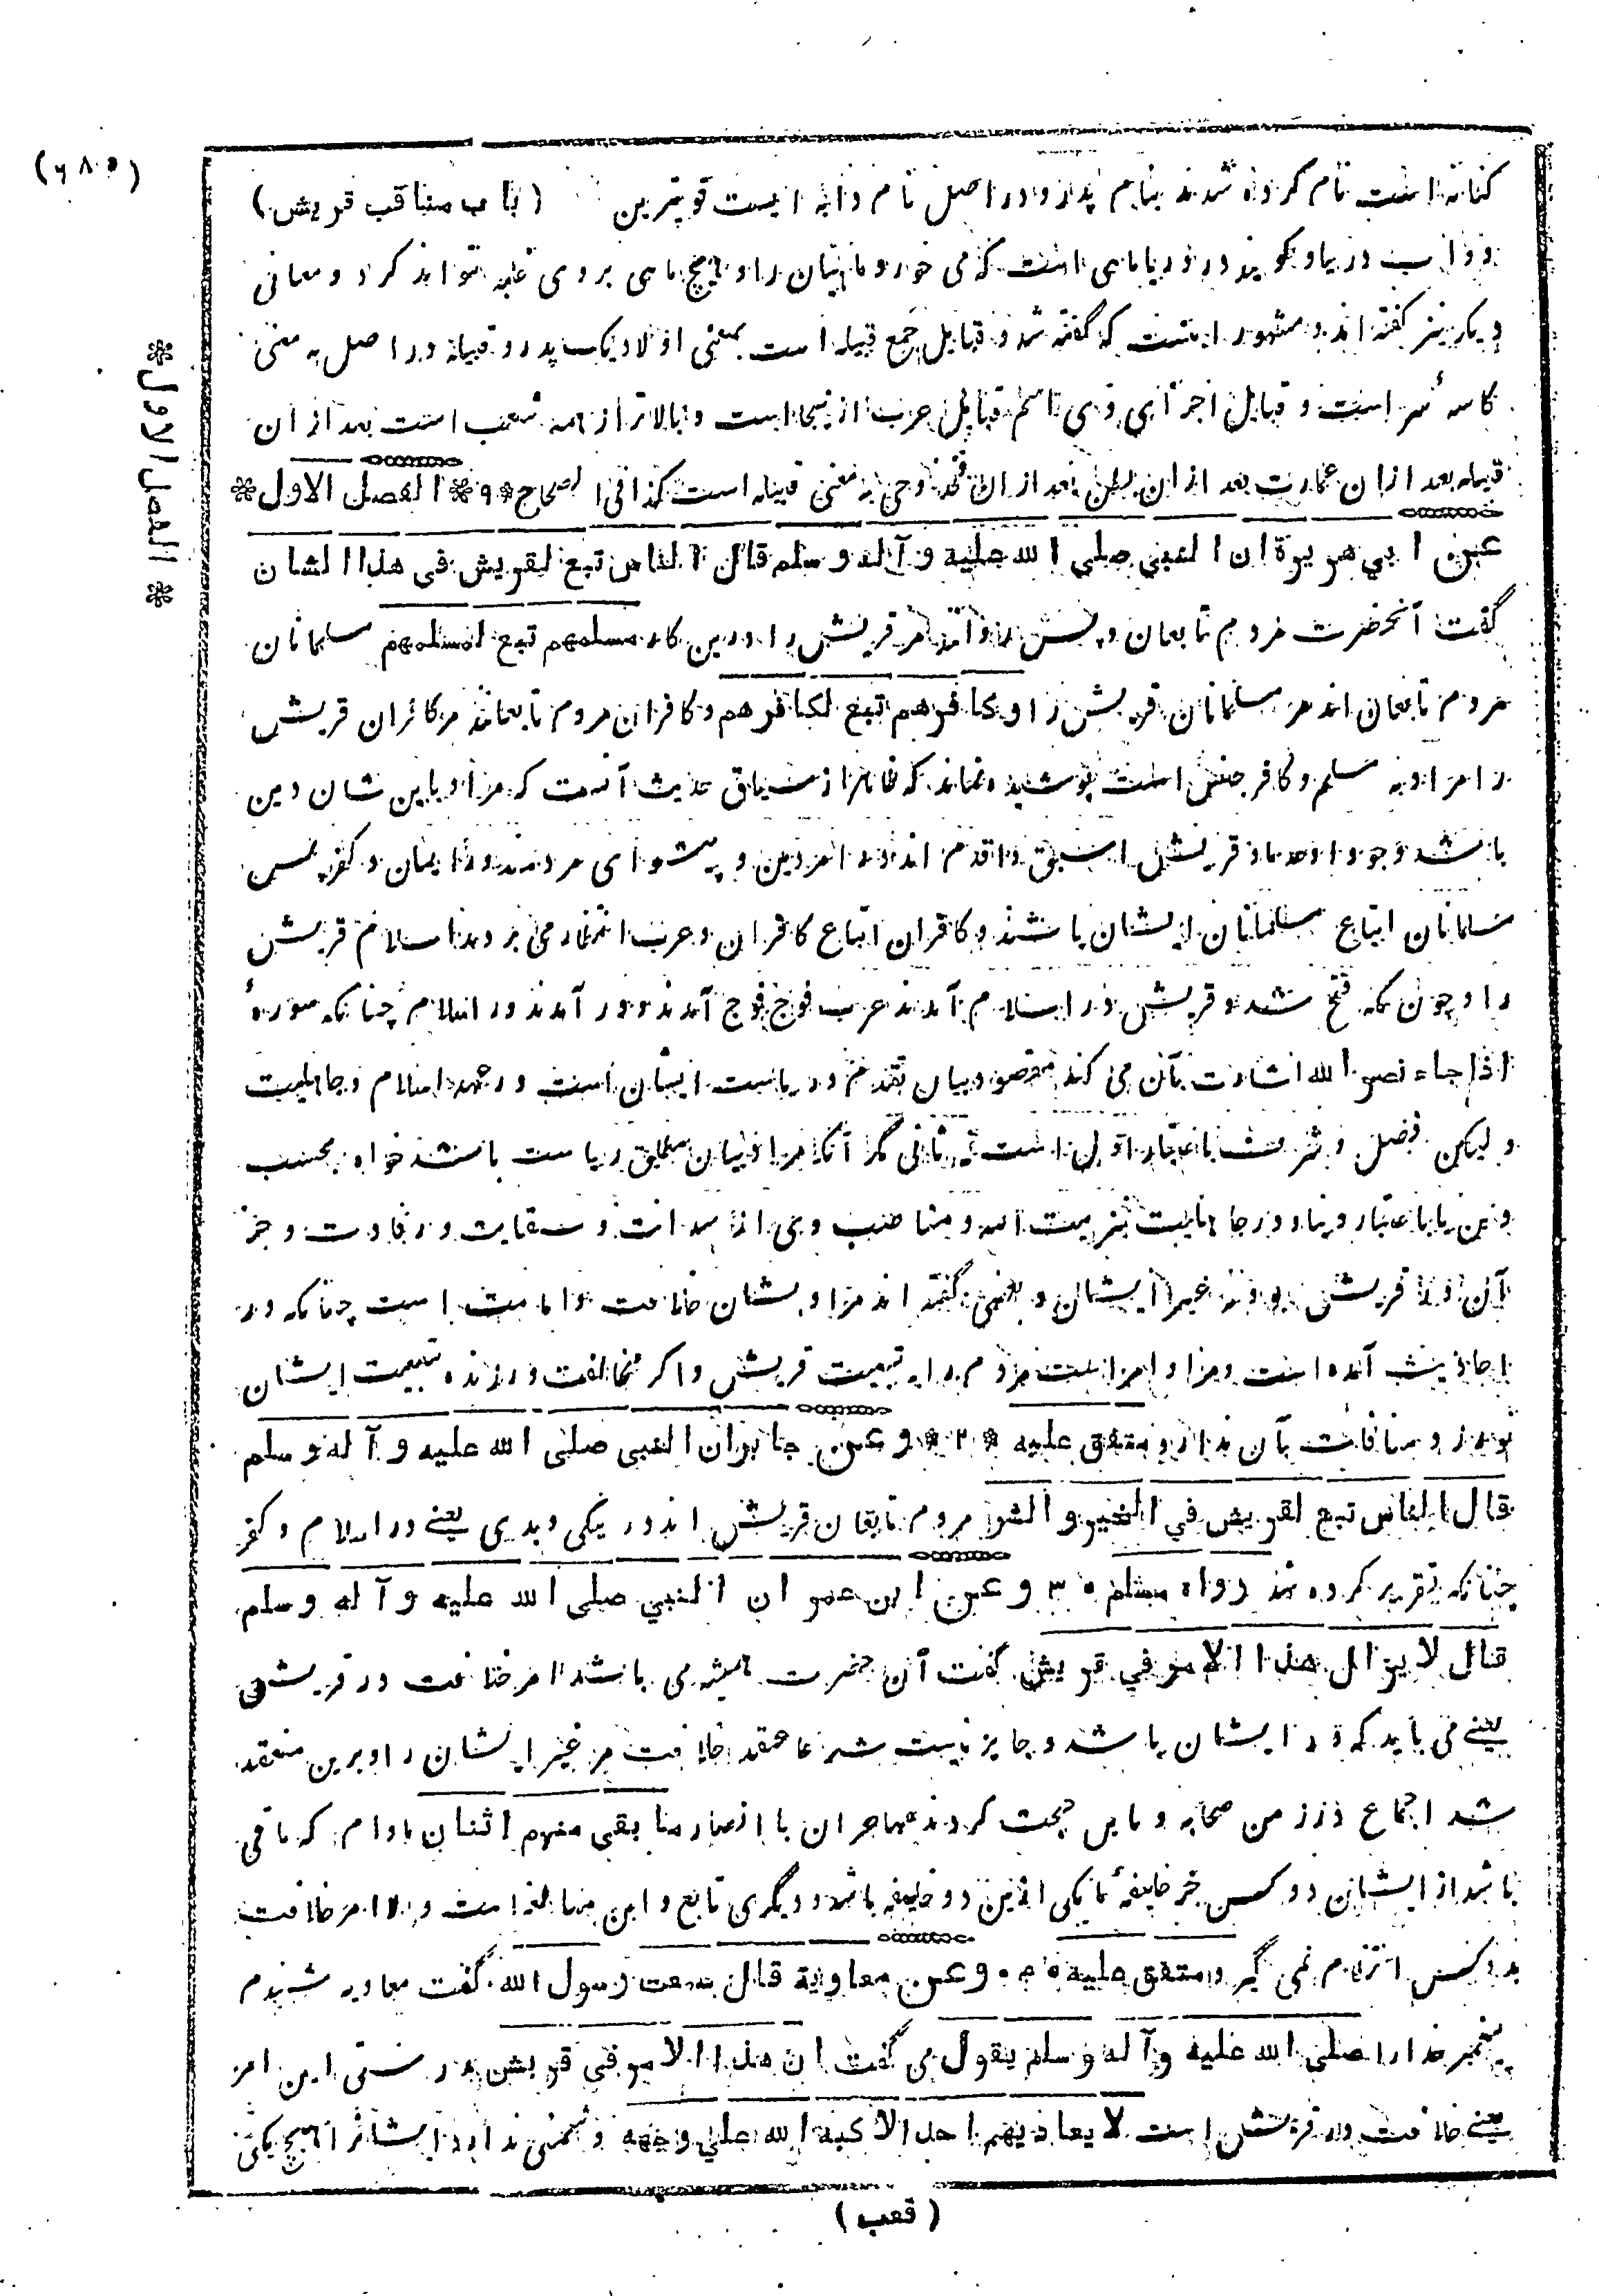 (۶۸۰۵)
کنانه است نام کرده شدند بنام پدر و در اصل نام دابه ایست قویترین (باب مناقب قریش)
دواب دریا و گویند در دریا ماهی است که می خورد ماهیان را و هیچ ماهی بر وی غلبه نتواند کرد و معانی
دیگر نیز گفته اند و مشهور اینست که گفته شد و قبایل جمع قبیله است بمعنی اولاد یک پدر و قبیله در اصل به معنی
کاسهٔ سر است و قبایل اجزای وی نام قبایل عرب ازینجا است و بالاتر از همه شعب است بعد از ان
قبیله بعد ازان عمارت بعد ازان بطن بعد ازان فخذ و حی به معنی قبیله است کذا فی الصحاح * الفصل الاول *
* الفصل الاول *
عن ابي هريرة ان النبي صلى الله عليه و آله و سلم قال الناس تبع لقريش في هذا الشان
گفت آنحضرت مردم تابعان و پس رو اند مر قریش را درین کار مسلمهم تبع لمسلمهم مسلمانان
مردم تابعان اند مر مسلمانان قریش را و كافرهم تبع لكافرهم و کافران مردم تابعانند مر کافران قریش
را مراد به مسلم و کافر جنس است پوشیده نماند که ظاهر از سیاق حدیث آنست که مراد باین شان دین
باشد وجودا و عدما و قریش اسبق و اقدم اند در امر دین و پیشوای مردمند در ایمان و کفر پس
مسلمانان اتباع مسلمانان ایشان باشند و کافران اتباع کافران و عرب انتظار می بردند اسلام قریش
را و چون مکه فتح شد و قریش در اسلام آمدند عرب فوج فوج آمدند و در آمدند در اسلام چنانکه سورهٔ
اذا جاء نصر الله اشارت بآن می کند مقصود بیان تقدم و ریاست ایشان است در عهد اسلام و جاهلیت
و لیکن فضل و شرف باعتبار اول است نه ثانی مگر آنکه مراد بیان مطلق ریاست باشد خواه بحسب
دین یا باعتبار دنیا و در جاهلیت تولیت و مناصب وی از سدانت و سقایت و رفادت و جز
آن قریش بودند غیر ایشان و بعضی گفته اند مراد بشان خلافت و امامت است چنانکه در
احادیث آمده است و مراد امر است مردم را به تبعیت قریش و اگر مخالفت ورزند تبعیت ایشان
نورزند و منافات بآن ندارد متفق عليه * ۲ * و عن جابر ان النبي صلى الله عليه و آله و سلم
قال الناس تبع لقريش في الخير و الشر مردم تابعان قریش اند در نیکی و بدی یعنے در اسلام و کفر
چنانکه تقریر کرده شد رواه مسلم * ۳ * و عن ابن عمر ان النبي صلى الله عليه و آله و سلم
قال لا يزال هذا الامر في قريش گفت آن حضرت همیشه می باشد امر خلافت در قریش
یعنے می باید که در ایشان باشد و جایز نیست شرعا عقد خلافت مر غیر ایشان را و برین منعقد
شد اجماع در زمن صحابه و باین حجت کردند مهاجران با انصار ما بقي منهم اثنان مادام که باقی
باشد از ایشان دو کس خبر خلیفهٔ تا یکی ازین دو خلیفه باشد و دیگری تابع و این مبالغه است و الا امر خلافت
بدو کس انتظام نمی گیرد متفق عليه * ۴ * و عن معاوية قال سمعت رسول الله گفت معاویه شنیدم
پیغمبر خدا را صلى الله عليه و آله و سلم يقول می گفت ان هذا الامر في قريش بدرستی این امر
یعنے خلافت در قریش است لا يعاديهم احد الا كبه الله على وجهه دشمنی ندارد ایشان را هیچ یکی
(قعب)